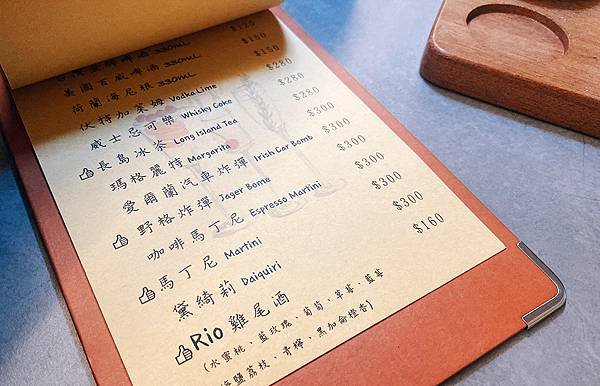 台灣金牌啤酒 330ml $120
美國百威啤酒 330ml $150
荷蘭海尼根 330ml $150
伏特加萊姆 Vodka Lime $280
威士忌可樂 Whisky Coke $280
長島冰茶 Long Island Tea $280
瑪格麗特 Margarita $300
愛爾蘭汽車炸彈 Irish Car Bomb $300
野格炸彈 Jager Bome $300
咖啡馬丁尼 Espresso Martini $300
馬丁尼 Martini $300
黛綺莉 Daiquiri $300
Rio 雞尾酒 $160
(水蜜桃、藍玫瑰、葡萄、草莓、藍莓
海鹽荔枝、青檸、黑加侖橙杏)